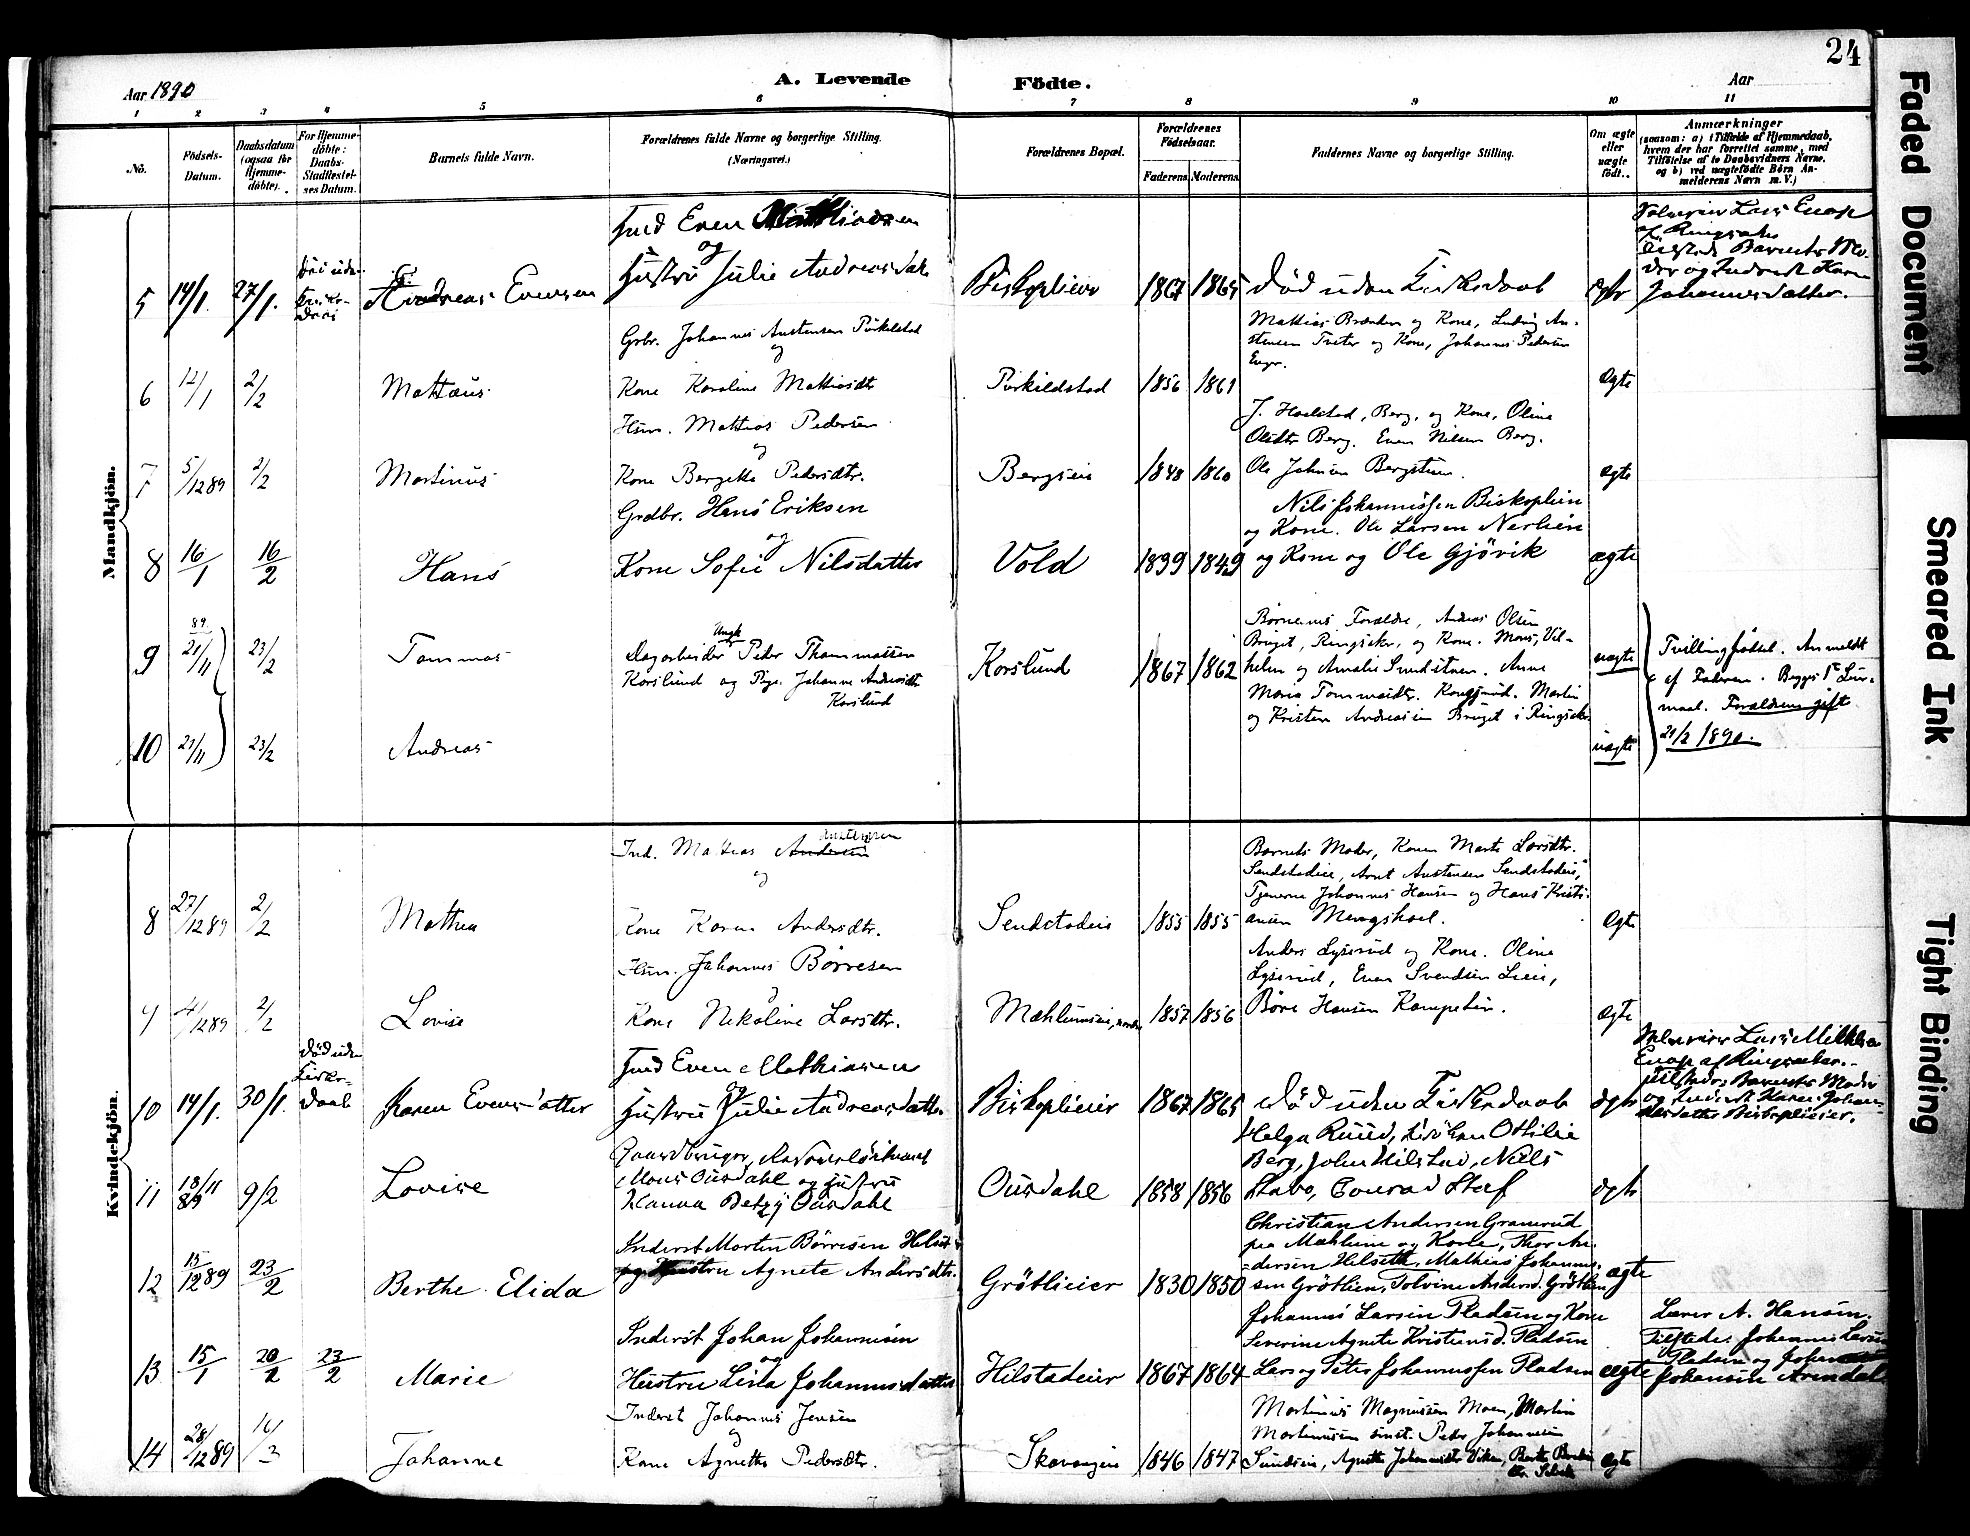 24
Aar 1890
A. Levende Födte.
Aar
1 2 3 4 5 6 7 8 9 10 11
No.
Födsels-Datum.
Daabsdatum (ogsaa for Hjemme-döbte).
For Hjemme-döbte: Daabs-Stadfæstel-ses Datum.
Barnets fulde Navn.
Forældrenes fulde Navne og borgerlige Stilling. (Næringsvei.)
Forældrenes Bopæl.
Forældrenes Födselsaar.
Faderens. Moderens.
Faddernes Navne og borgerlige Stilling.
Om ægte eller uægte födt.
Anmærkninger
(saasom: a) i Tilfælde af Hjemmedaab, hvem der har forrettet samme, med Tilföielse af to Daabsvidners Navne, og b) ved uægtefödte Börn An-melderens Navn m. V.)
Mandkjön.
5 14/1. 27/1. Andreas Evensen
Ind Even Mathiasen
og
Hustru Julie Andreasdatr
Biskoplieier 1867 1865 död uden Kirkedaab ægte
Johannesdatter.
6 12/1 2/2 Mattæus
Grbr. Johannes Austensen Pirkelstad
og
Kone Karoline Mattiasdtr
Pirkildstad 1856 1861
Mattias Brænden og Kone, Ludvig Au-
stensen Tveter og Kone, Johannes Pedersen
Ægte
7 5/12 89 2/2 Martinus
Husm. Mattias Pedersen
og
Kone Bergitte Pedersdtr.
Bergseie 1848 1860
J. Haelstad, Berg, og Kone, Oline
Olsdtr Berg. Even Nilsen Berg.
Ole Johnsen Bergstuen.
Ægte
8 16/1 16/2 Hans
Grdbr. Hans Eriksen
og
Kone Sofie Nilsdatter
Vold 1899 1849
Nils Johannessen Biskoplien
og Kone. Ole Larsen Nerlien
og Kone og Ole Gjövik
ægte
9 89 21/11 23/2 Tommas
Ungk
Dagarbeider Peder Thommassen
Korslund og Pige Johanne Andersdtr
Korslund
Korslund 1867 1862
Börnenes Forældre, Andreas Olsen
Bruget, Ringsaker, og Kone. Mons, Vil-
helm og Amalie Smedstuen. Anne
Maria Tommasdtr. Kongsrud. Martin
og Kristen Andreassen Bruget i Ringsaker
uægte
Tvillingfödsel. Anmeldt
af Faderen. Begges 1ste Leier-
maal. Forældrene gift
21/2 1890.
10 21/11 23/2 Andreas
uægte
Kvindekjön.
8 27/12 89 2/2 Mathea
Austensen
Ind. Mattias Andersen
og
Kone Karen Andersdtr.
Sendstadeie 1855 1855
Barnets Moder, Konen Marte Larsdtr.
Sendstadeie, Arnt Austensen Sendstadeie,
Tjenerne Johannes Hansen og Hans Kristi-
ansen Mengshoel.
Ægte
9 4/12 89 2/2 Lovise
Husm. Johannes Börresen
og
Kone Nikoline Larsdtr.
Mæhlumseie, nordre 1857 1856
Anders Lyserud og Kone. Oline
Lyserud, Even Svendsen Lieie,
Böre Hansen Kampelien.
Ægte
10 14/1. 30/1. Död uden Kirke-daab
Karen Evensdatter
Ind Even Mathiasen
og
Hustru Julie Andreasdatter
Biskoplieier 1867 1865 död uden Kirkedaab ægte
Enap af Ringsaker.
Tilstede Barnets Moder
og Inderst Karen Johan-
nesdatter Biskoplieier.
11 18/11 89 9/2 Lovise
Gaardbruger,
Mons Ousdahl og Hustru
Hanna Betzy Ousdahl
Ousdahl 1858 1856
Helga Ruud, Fröken Ottilie
Berg, John Hilstad, Niels
Stabo, Conrad Staf
ægte
12 15/12 89 23/2 Berthe Elida
Inderst Morten Börresen Helset
og Hustru Agnete Andersdtr.
Grötlieier 1830 1850
Christian Andersen Gramrud
paa Mæhlum og Kone, Thor An-
dersen Helseth, Mathias Johannes-
sen Grötlien, Tolvine Andersd. Grötlien
ægte
13 15/1 20/2 23/2 Marie
Inderst Johan Johannesen
og
Hustru Lina Johannesdatter
Hilstadeier 1867 1864
Johannes Larsen Pladsen og Kone
Severine Agnete Kristiansd. Pladsen
Lars og Peter Johannessen Pladsen
ægte
Lærer A. Hansen,
Tilstede: Johannes Larsen
Pladsen og
Johansen Arendal
14 28/12 89 14/3 Johanne
Inderst Johannes Jensen
og
Kone Agnethe Pedersdtr.
Skavangeie 1846 1847
Martinius Magnussen Moen, Martin
Martinusen smst. Peder Johannesen
Sundseie, Agnethe Johannesdtr Viken, Berthe
Ægte
Faded Document
Smeared Ink
Tight Binding